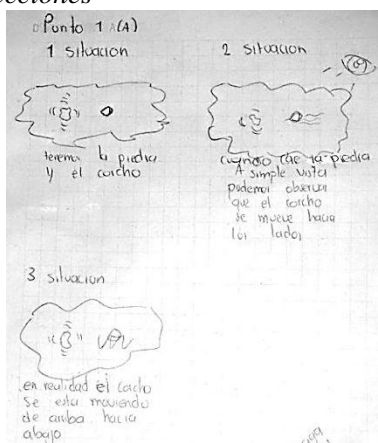 cciones
Punto 1 (A)
1 situacion
2 situacion
tenemos la piedra
y el corcho
cuando cae la piedra
A simple vista
podemos observar
que el corcho
se mueve hacia
los lados
3 situacion
en realidad el corcho
se esta moviendo
de arriba hacia
abajo